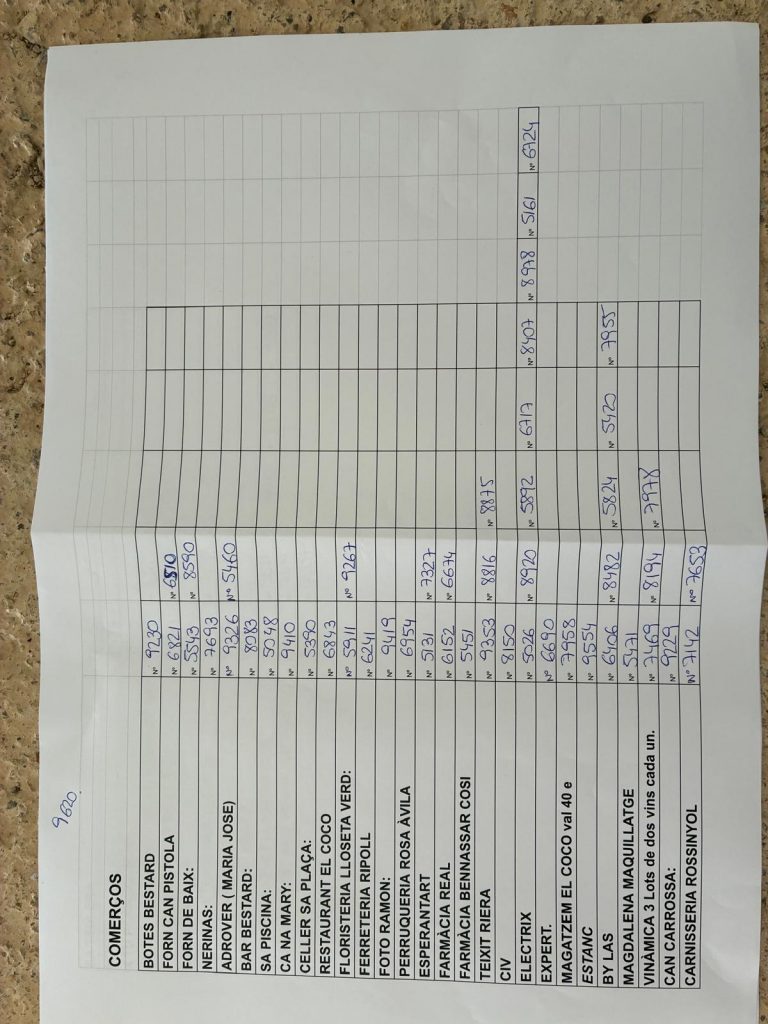 9620.
COMERÇOS
BOTES BESTARD Nº 9230
FORN CAN PISTOLA Nº 6821 Nº 6810
FORN DE BAIX: Nº 5543 Nº 8590
NERINAS: Nº 7693
ADROVER ( MARIA JOSE) Nº 9326 Nº 5460
BAR BESTARD: Nº 8083
SA PISCINA: Nº 5048
CA NA MARY: Nº 9410
CELLER SA PLAÇA: Nº 5390
RESTAURANT EL COCO Nº 6843
FLORISTERIA LLOSETA VERD: Nº 5911 Nº 9267
FERRETERIA RIPOLL Nº 6241
FOTO RAMON: Nº 9419
PERRUQUERIA ROSA ÀVILA Nº 6954
ESPERANTART Nº 5131 Nº 7327
FARMÀCIA REAL Nº 6152 Nº 6674
FARMÀCIA BENNASSAR COSI Nº 5451
TEIXIT RIERA Nº 9353 Nº 8816 Nº 8875
CIV Nº 8150
ELECTRIX Nº 5026 Nº 8920 Nº 5892 Nº 6717 Nº 8407 Nº 8978 Nº 5161 Nº 6724
EXPERT. Nº 6690
MAGATZEM EL COCO val 40 e Nº 7958
ESTANC Nº 9554
BY LAS Nº 6406 Nº 8482 Nº 5824 Nº 5420 Nº 7955
MAGDALENA MAQUILLATGE Nº 5471
VINÀMICA 3 Lots de dos vins cada un. Nº 7469 Nº 8194 Nº 7978
CAN CARROSSA: Nº 9229
CARNISSERIA ROSSINYOL Nº 7142 Nº 7653